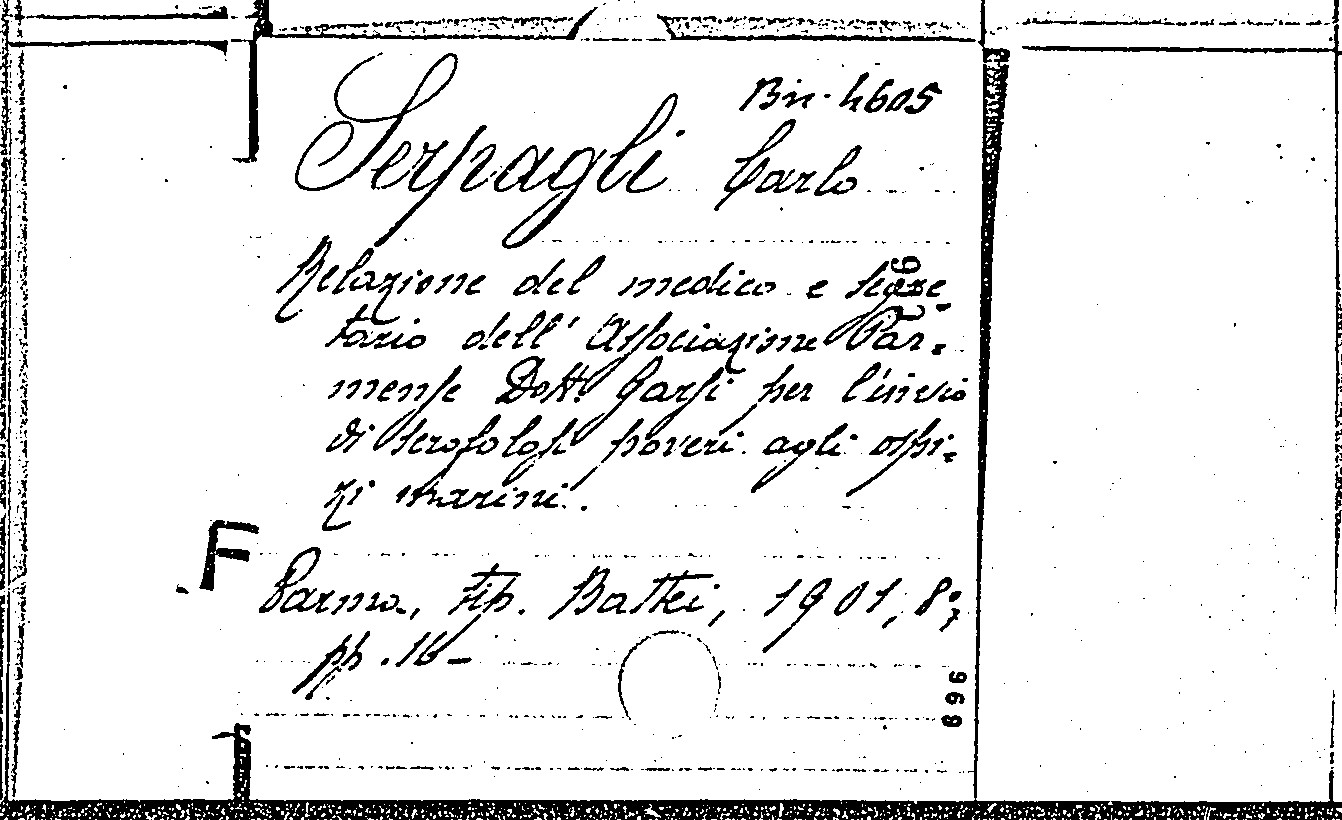 Bn. 4605
Serpagli Carlo
Relazione del medico e segre-
tario dell' Associazione Par-
mense Dott. Garsi per l'invio
di scrofolosi poveri agli ospi-
zi marini.
F
Parma, tip. Battei, 1901, 8°,
pp. 16 -
896